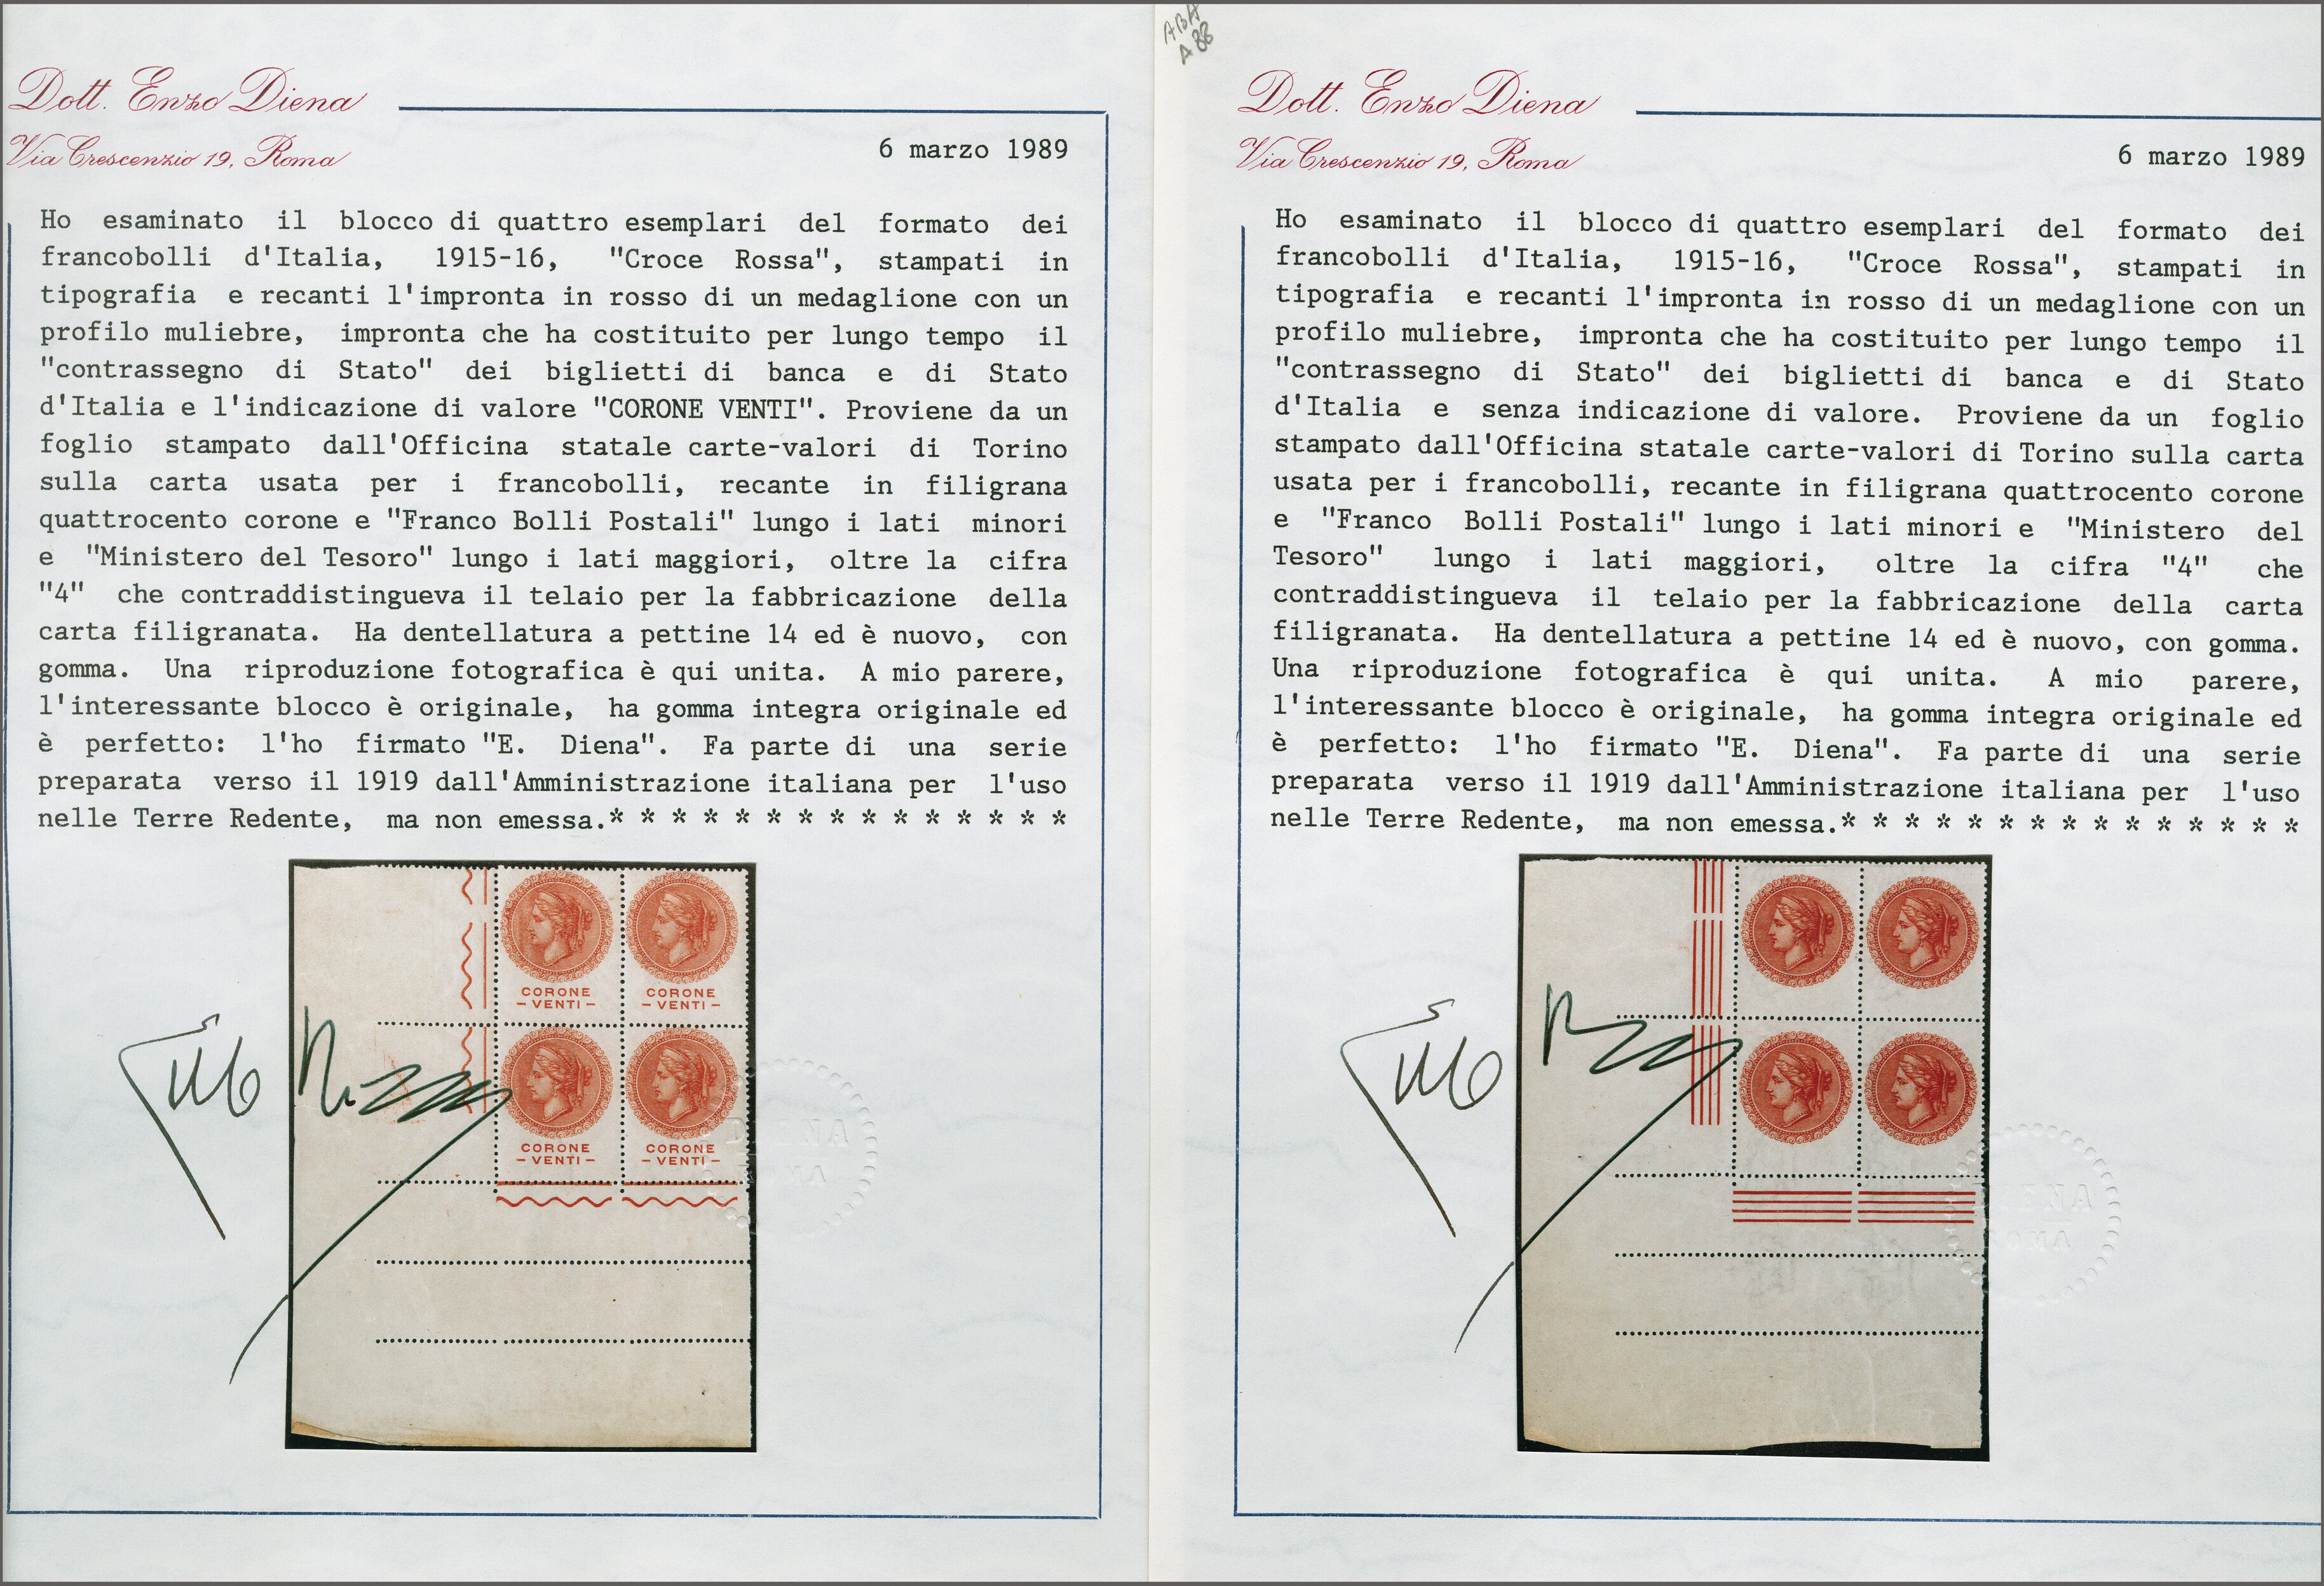 Dott. Enzo Diena
Via Crescenzio 19, Roma
6 marzo 1989
Ho esaminato il blocco di quattro esemplari del formato dei
francobolli d'Italia, 1915-16, "Croce Rossa", stampati in
tipografia e recanti l'impronta in rosso di un medaglione con un
profilo muliebre, impronta che ha costituito per lungo tempo il
"contrassegno di Stato" dei biglietti di banca e di Stato
d'Italia e l'indicazione di valore "CORONE VENTI". Proviene da un
foglio stampato dall'Officina statale carte-valori di Torino
sulla carta usata per i francobolli, recante in filigrana
quattrocento corone e "Franco Bolli Postali" lungo i lati minori
e "Ministero del Tesoro" lungo i lati maggiori, oltre la cifra
"4" che contraddistingueva il telaio per la fabbricazione della
carta filigranata. Ha dentellatura a pettine 14 ed è nuovo, con
gomma. Una riproduzione fotografica è qui unita. A mio parere,
l'interessante blocco è originale, ha gomma integra originale ed
è perfetto: l'ho firmato "E. Diena". Fa parte di una serie
preparata verso il 1919 dall'Amministrazione italiana per l'uso
nelle Terre Redente, ma non emessa.* * * * * * * * * * * * * * *
CORONE
- VENTI -
CORONE
- VENTI -
CORONE
- VENTI -
CORONE
- VENTI -
ABA
A 88
Dott. Enzo Diena
Via Crescenzio 19, Roma
6 marzo 1989
Ho esaminato il blocco di quattro esemplari del formato dei
francobolli d'Italia, 1915-16, "Croce Rossa", stampati in
tipografia e recanti l'impronta in rosso di un medaglione con un
profilo muliebre, impronta che ha costituito per lungo tempo il
"contrassegno di Stato" dei biglietti di banca e di Stato
d'Italia e senza indicazione di valore. Proviene da un foglio
stampato dall'Officina statale carte-valori di Torino sulla carta
usata per i francobolli, recante in filigrana quattrocento corone
e "Franco Bolli Postali" lungo i lati minori e "Ministero del
Tesoro" lungo i lati maggiori, oltre la cifra "4" che
contraddistingueva il telaio per la fabbricazione della carta
filigranata. Ha dentellatura a pettine 14 ed è nuovo, con gomma.
Una riproduzione fotografica è qui unita. A mio parere,
l'interessante blocco è originale, ha gomma integra originale ed
è perfetto: l'ho firmato "E. Diena". Fa parte di una serie
preparata verso il 1919 dall'Amministrazione italiana per l'uso
nelle Terre Redente, ma non emessa.* * * * * * * * * * * * * * *